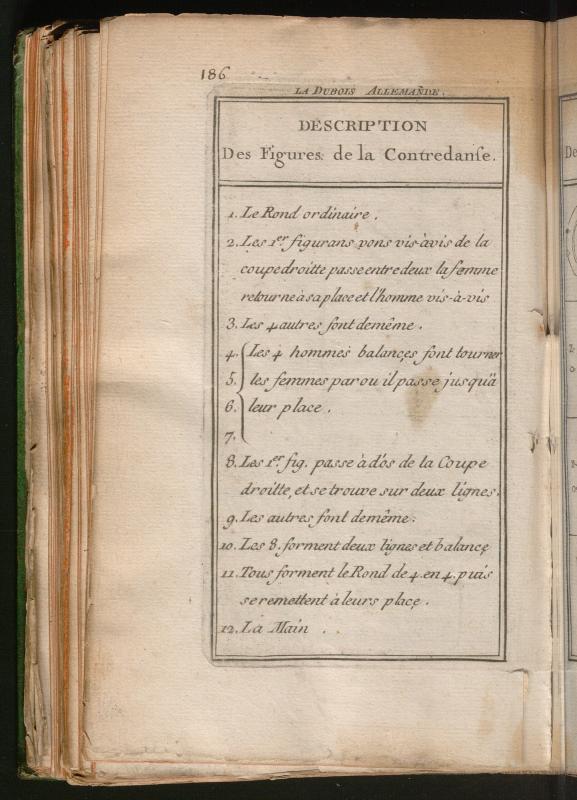 186
LA DUBOIS ALLEMAÑDE.
DESCRIPTION
Des Figures. de la Contredanſe.
1. Le Rond ordinaire.
2. Les 1.er figurans vons vis-à-vis de la
coupe droitte passe entre deux la femme
retourne à sa place et l'homme vis-à-vis
3. Les 4 autres font demême.
4. Les 4 hommes balançes font tourner
5. les femmes par ou il passe jusqu'à
6. leur place.
7.
8. Les 1.er fig. passe à d'os de la Coupe
droitte, et se trouve sur deux lignes.
9. Les autres font demême.
10. Les 8. forment deux lignes et balançe
11. Tous forment le Rond de 4. en 4. puis
se remettent à leurs place.
12. La Main.
De